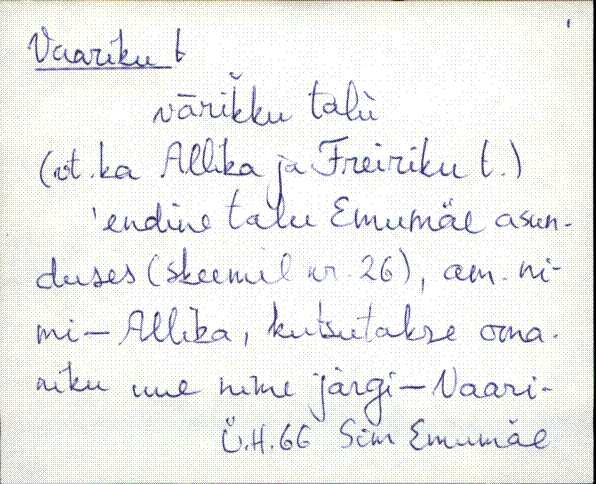 Vaariku t
vāriǩku talù
(vt. ka Allika ja Freiriku t.)
'endine talu Emumäe asun-
duses (skeemil nr. 26), am. ni-
mi – Allika, kutsutakse oma-
niku une nime järgi – Vaari-
Ü.H. 66 Sim Emumäe